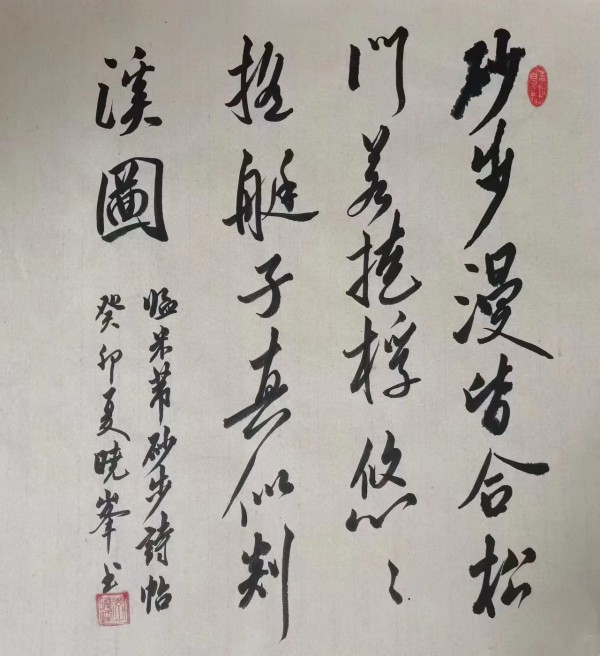 砂步漫皆合松
門若掩桴悠々
搖艇子真似剡
溪圖
臨米芾砂步詩帖
癸卯夏曉峯书